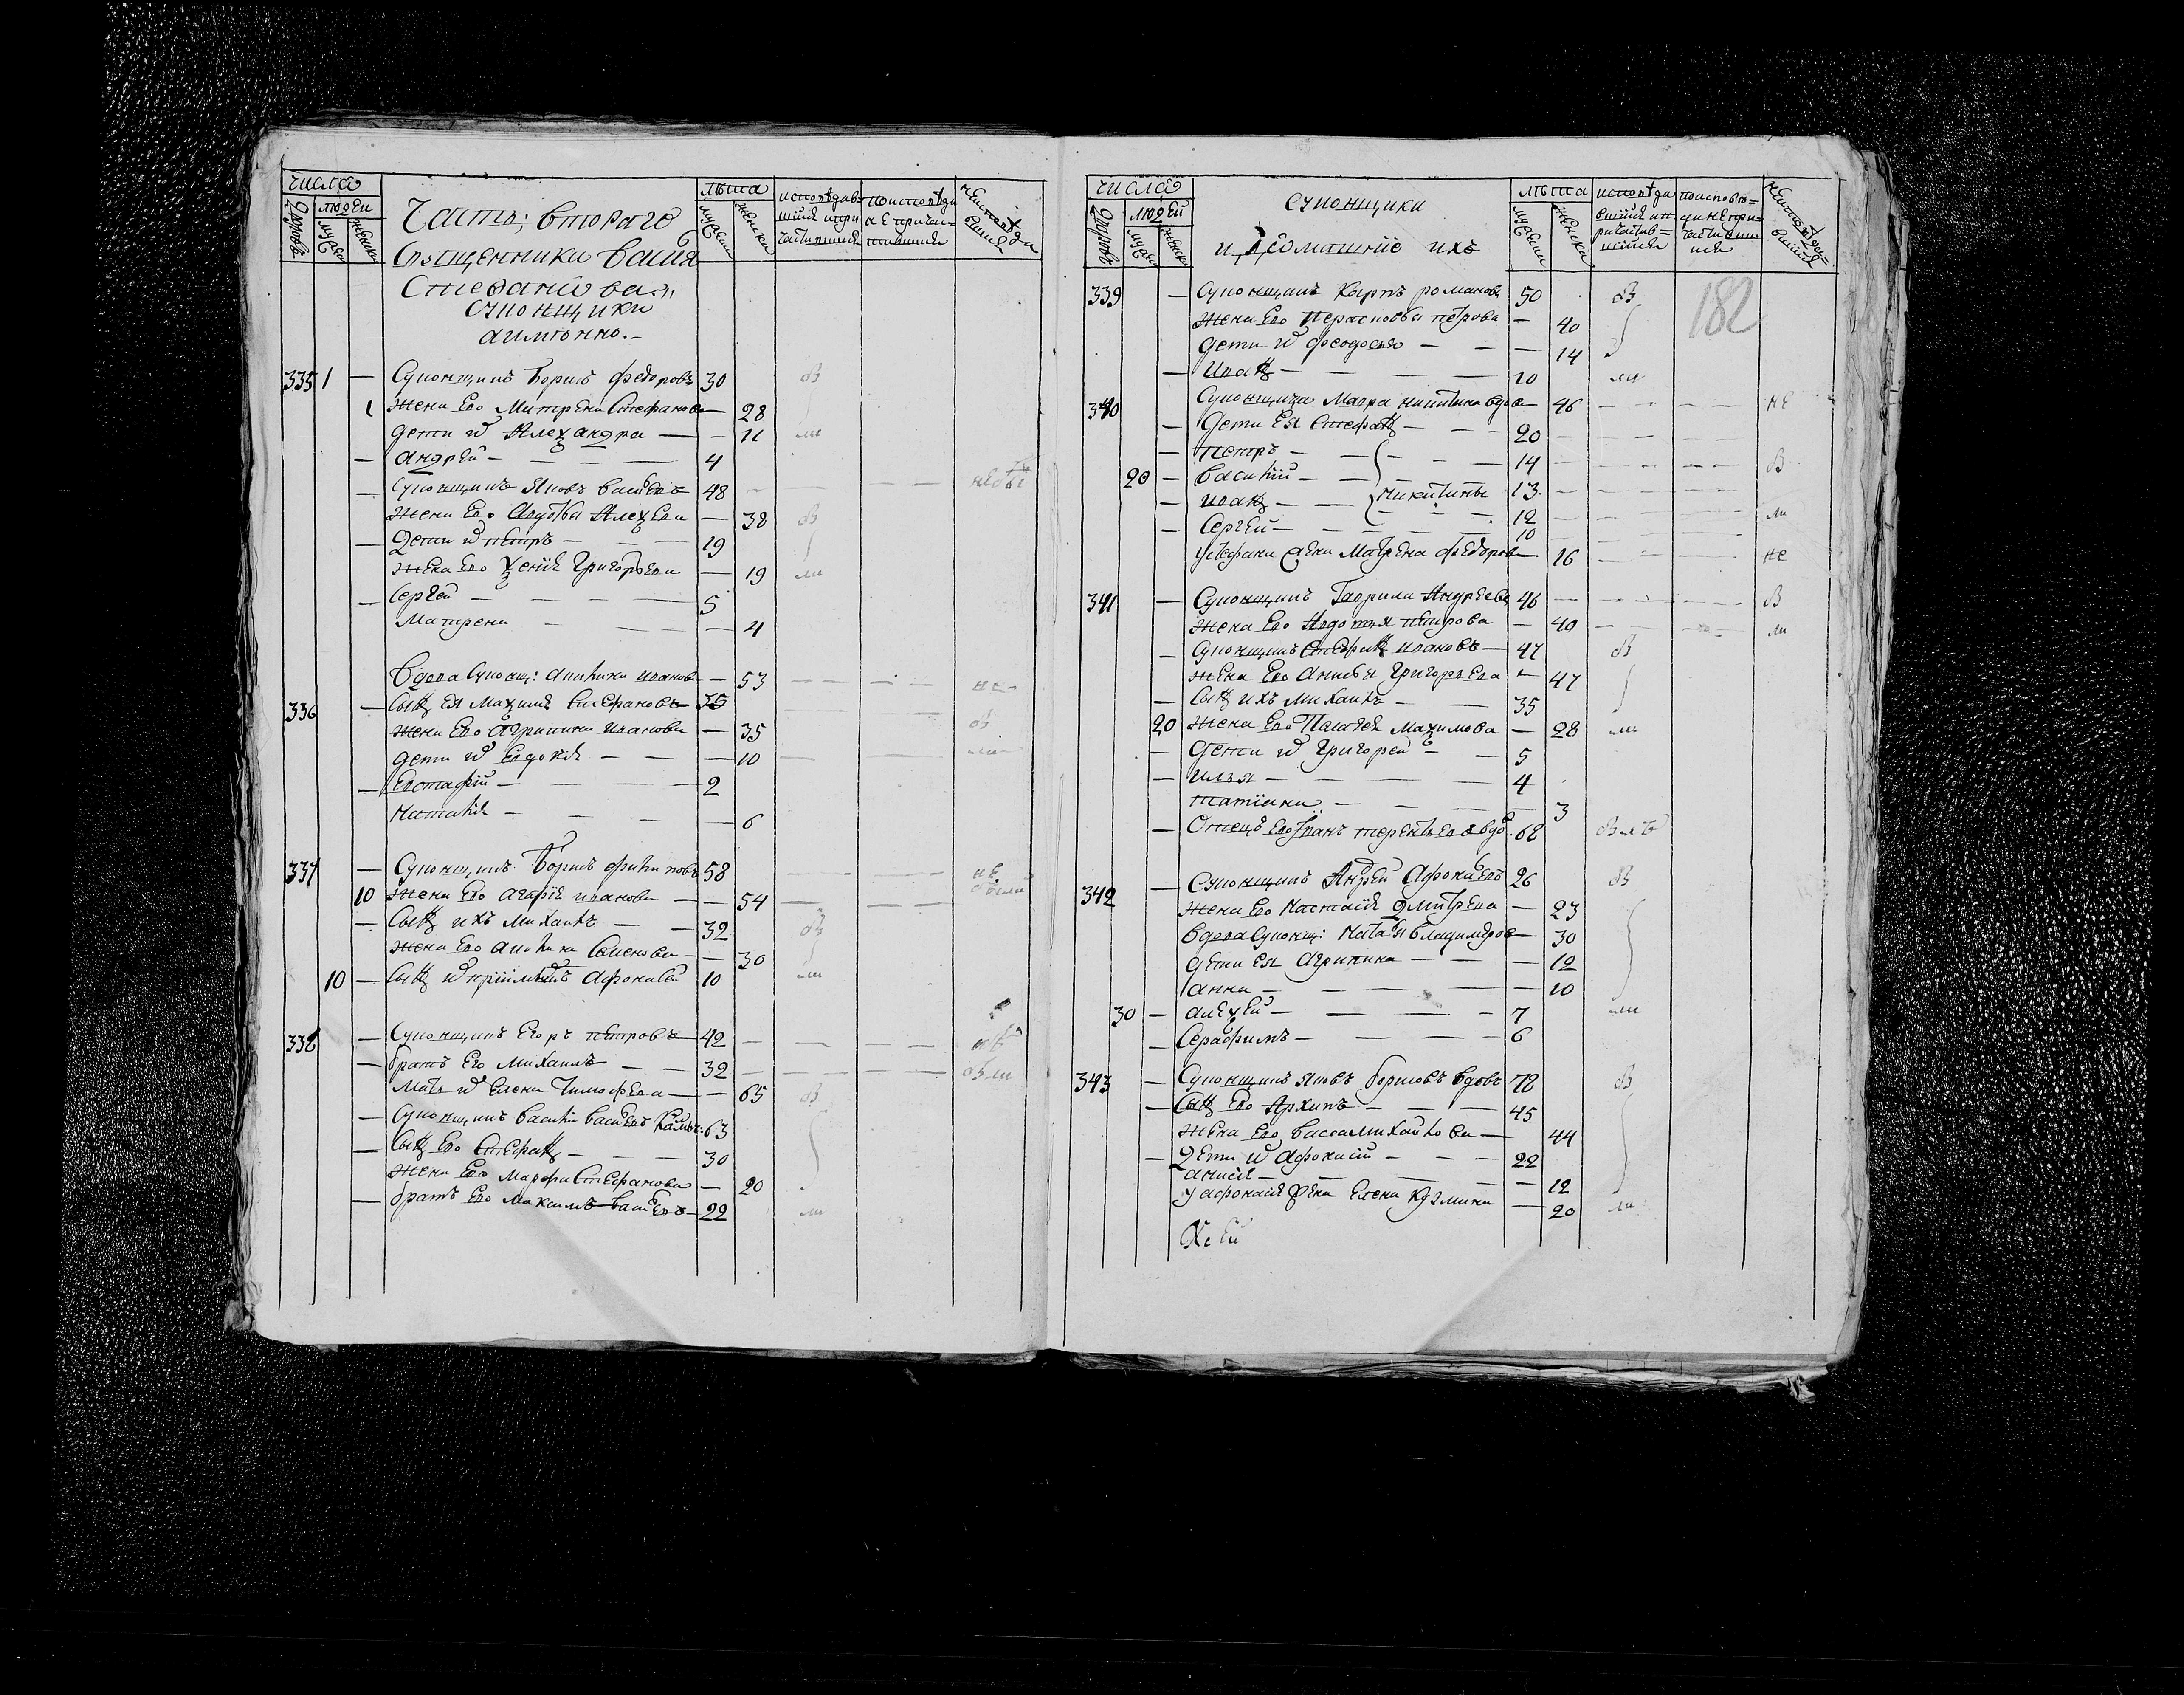 числа
людеи
Дворовъ
мужска
женска
Часть; втораго
Священника васил
Стефанова
Суконщики
аимянно.-
лѣта
мужска
женска
исповѣдав=
шияся и при
частившияся
поисповѣди
непричас=
тившияся
неисповѣда
вшияся
335 1 — Суконщикъ Борисъ Федоровъ 30 об
1 жена Его Матрена Стефанова — 28
дети их Александра — — 11 ли
— андрей — 4
— Суконщикъ Яковъ васильевъ 48 — — — небы
жена Его Авдотья Алексѣева — 38 об
— дети их петръ — 19
жена Его Ксения Григорьева — 19 ли
— Сергей — 5
Матрена — 4
Вдова Суконщ: Акилина иванова — 53 — — — не
336 — Сынъ Ея Максимъ Стефановъ 35
жена Его агрипина иванова — 35 об
дети их Евдокия — — 10 ли
— Евстафий — 2
Наталия — 6
337 — Суконщикъ Борисъ филиповъ 58 — — — не
10 жена Его агафия иванова — 54 — — — были
— Сынъ ихъ Михаилъ — 32 об
жена Его акилина Семенова — 30
10 — Сынъ их приимышъ Афонасей 10 ли
338 — Суконщикъ Егоръ петровъ 42 — — — не
— братъ Его Михаилъ — 32 — — — были
Мать их Елена Тимофеева — 65 об
— Суконщикъ васили васильевъ 63
— Сынъ Его Стефанъ — 30
жена Его Марфа Стефанова — 20
— братъ Его Максимъ васильевъ 22 ли
числа
людей
Дворовъ
мужска
женска
суконщики
и домашние ихъ
лѣта
мужска
женска
исповѣда
вшияся ип
ричастив=
шияся
поисповѣ=
ди непри=
частивши
яся
неисповѣда=
вшияся
182
339 — Суконщикъ Карпъ романовъ 50 об
жена Его Парасковья петрова — 40
дети их феодосья — — 14
— Иванъ — 10 ли
340 Суконщица Мавра никитина вдова 46 — — — не
— дети Ея Стефанъ — 20 — — —
— петръ — 14 — — — об
20 — василий — 13 — — —
— иванъ — никитины 12 — — — ли
— Сергей — 10 — — —
у стефана жена Матрена федорова 16 — — — не
341 — Суконщикъ Гаврила Андреевъ 46 — — — об
жена Его Авдотья петрова — 40 — — — ли
— Суконщикъ Стефанъ ивановъ — 47 об
жена Его Анисья Григорьева — 47
— Сынъ ихъ михаилъ — 35
20 жена Его Палагея Максимова — 28 ли
— дети их Григорей — 5
— илья — 4
татиана — 3
— Отецъ Его Иванъ терентьевъ вдо 68
342 — Суконщикъ Андрей Афонасьевъ 26 об
жена Его Настасия Дмитрева — 23
вдова Суконщ: Наталья владимирова — 30
дети Ея агрипина — 12
анна — 10
30 — алексей — 7 ли
— Серафимъ — 6
343 — Суконщикъ Яковъ борисовъ вдовъ 78 об
— Сынъ Его Архипъ — 45
жена Его васса михаилова — 44
— дети их афонасий — 22
анисия — 12
у афонасия жена Елена Кузмина — 20 ли